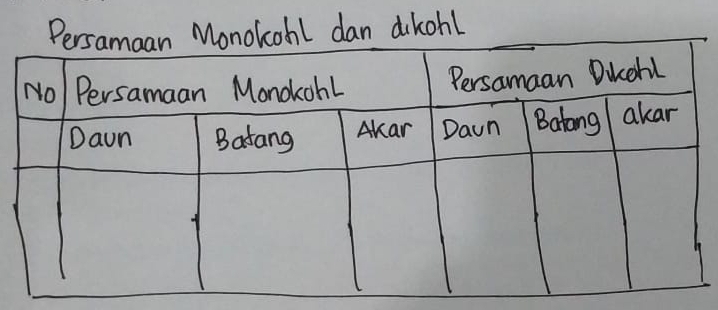 Persamaan Monokohl dan dikohl
No Persamaan Monokohl Persamaan Dikohl
Daun Batang Akar Daun Batang akar